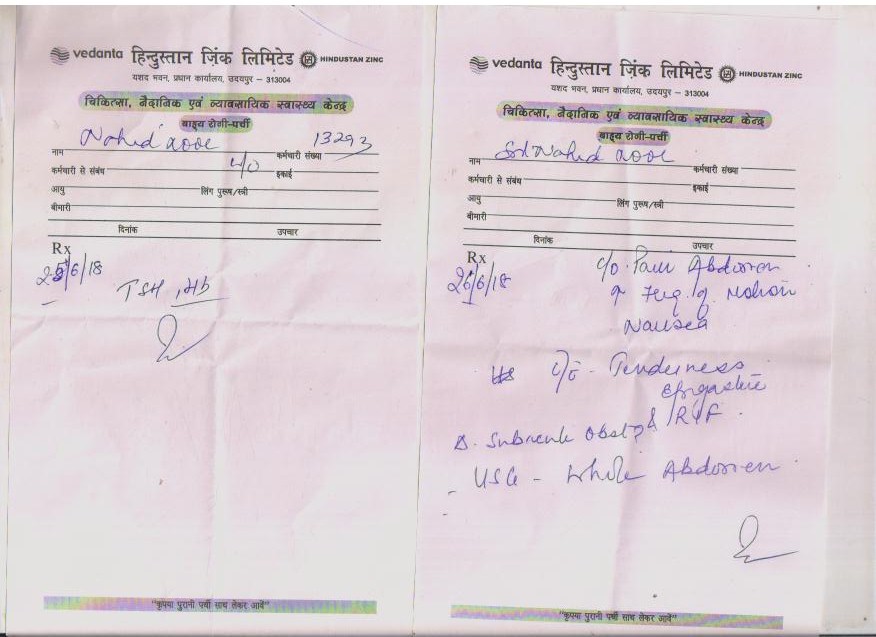 vedanta हिन्दुस्तान ज़िंक लिमिटेड HINDUSTAN ZINC
यशद भवन, प्रधान कार्यालय, उदयपुर – 313004
चिकित्सा, नैदानिक एवं व्यावसायिक स्वास्थ्य केन्द्र
बाह्य रोगी-पर्ची
नाम Nahid कर्मचारी संख्या 13293
कर्मचारी से संबंध इकाई
आयु लिंग पुरूष/स्त्री
बीमारी
दिनांक उपचार
Rx
25/6/18
TSH, Hb
"कृपया पुरानी पर्ची साथ लेकर आवें"
vedanta हिन्दुस्तान ज़िंक लिमिटेड HINDUSTAN ZINC
यशद भवन, प्रधान कार्यालय, उदयपुर – 313004
चिकित्सा, नैदानिक एवं व्यावसायिक स्वास्थ्य केन्द्र
बाह्य रोगी-पर्ची
नाम Nahid कर्मचारी संख्या
कर्मचारी से संबंध इकाई
आयु लिंग पुरूष/स्त्री
बीमारी
दिनांक उपचार
Rx
26/6/18 c/o. Pain Abdomen
Freq. of Motion
Nausea
Tenderness
Epigastric
& RIF.
Subacute Obst?
USG - Whole Abdomen
"कृपया पुरानी पर्ची साथ लेकर आवें"